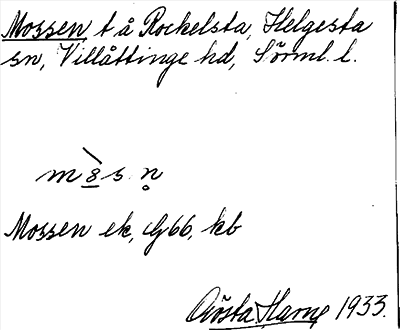 Mossen, t å Rockelsta, Helgesta
sn, Villåttinge hd, Sörml. l.
m 8̲ s. n̥
Mossen ek, G66, kb
Gösta Harne 1933.